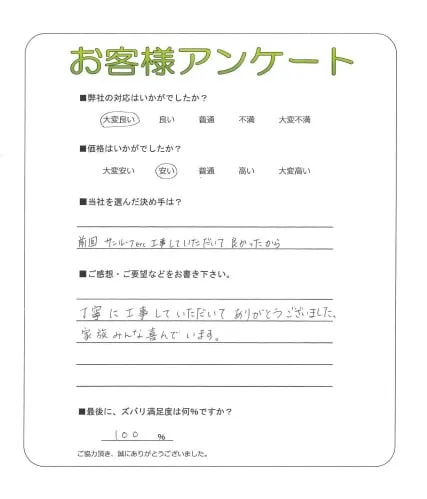 お客様アンケート
■弊社の対応はいかがでしたか？
大変良い 良い 普通 不満 大変不満
■価格はいかがでしたか？
大変安い 安い 普通 高い 大変高い
■当社を選んだ決め手は？
前回 サンルーフetc 工事していただいて 良かったから
■ご感想・ご要望などをお書き下さい。
丁寧に工事していただいてありがとうございました。
家族みんな喜んでいます。
■最後に、ズバリ満足度は何％ですか？
100 ％
ご協力頂き、誠にありがとうございました。